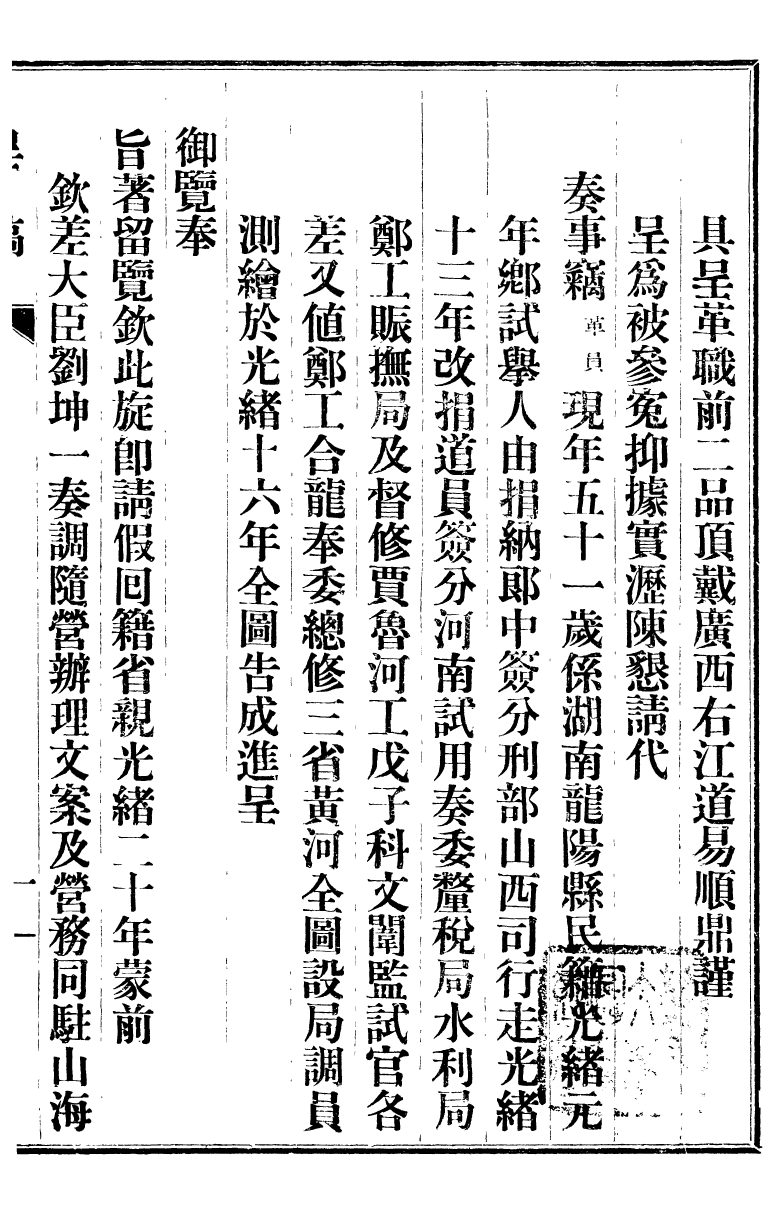 具呈革職前二品頂戴廣西右江道易順鼎謹
呈爲被參冤抑據實瀝陳懇請代
奏事竊革員現年五十一歲係湖南龍陽縣民籍光緒元
年鄉試舉人由捐納郎中簽分刑部山西司行走光緒
十三年改捐道員簽分河南試用奏委釐稅局水利局
鄭工賑撫局及督修賈魯河工戊子科文闈監試官各
差又値鄭工合龍奉委總修三省黃河全圖設局調員
測繪於光緒十六年全圖告成進呈
御覽奉
旨著留覽欽此旋卽請假囘籍省親光緒二十年蒙前
欽差大臣劉坤一奏調隨營辦理文案及營務同駐山海
呈稿
一